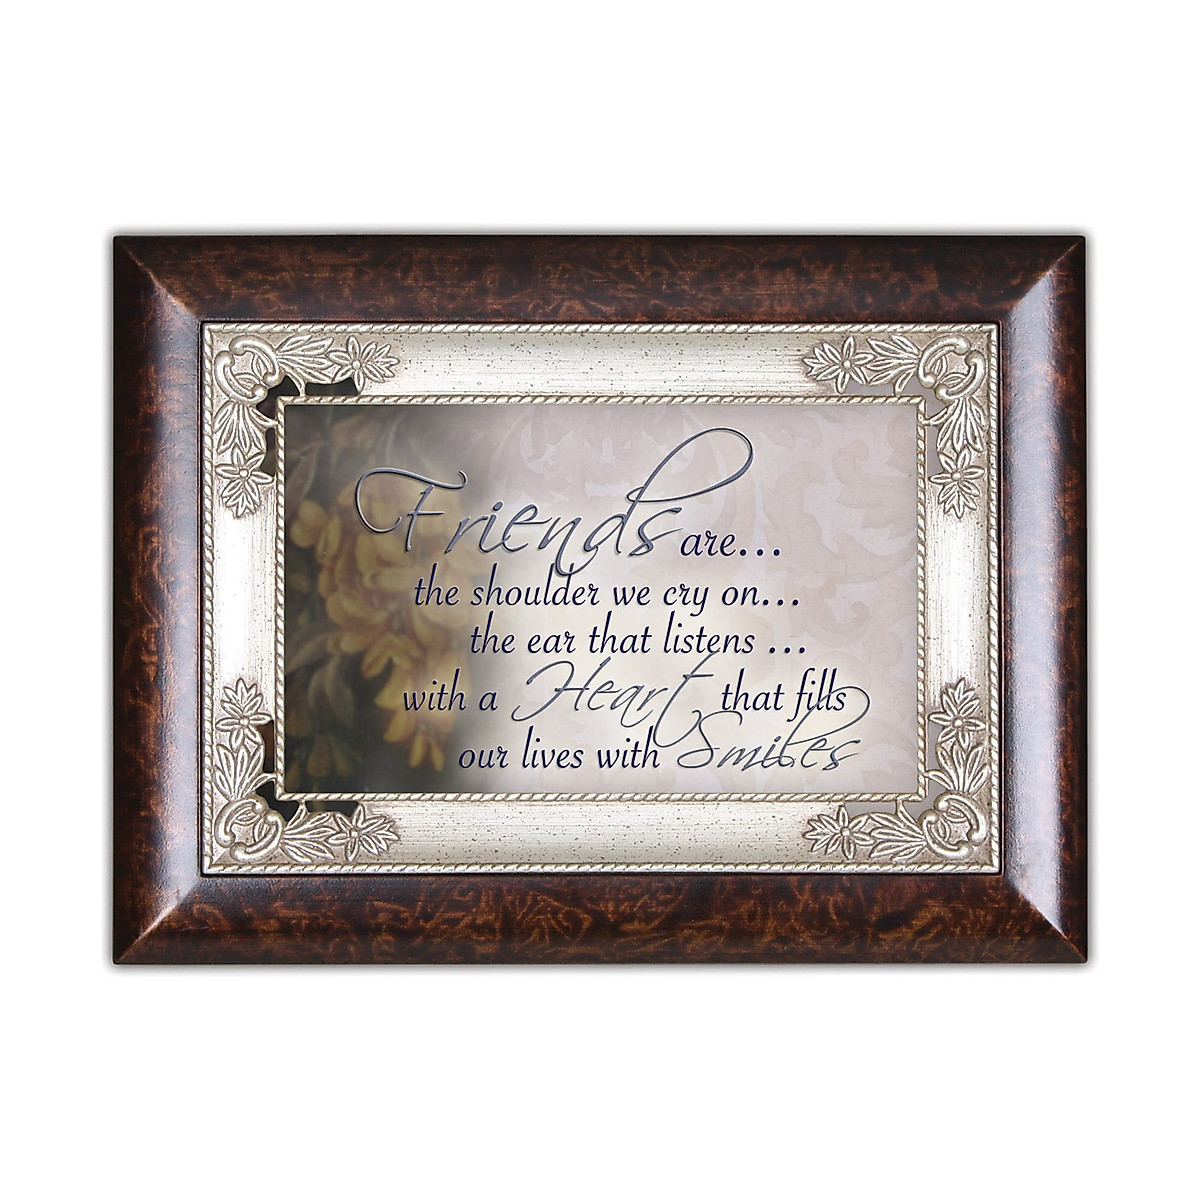 Friends are...
the shoulder we cry on...
the ear that listens ...
with a Heart that fills
our lives with Smiles